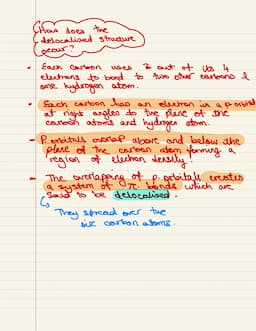 How does the
delocalised structure
occur?
• Each carbon uses 3 out of its 4
electrons to bond to two other carbons &
one hydrogen atom.
• Each carbon has an electron in a p orbital
at right angles to the plane of the
carbon atoms and hydrogen atom.
• P orbitals overlap above and below the
plane of the carbon atom forming a
region of electron density.
• The overlapping of p. orbitals creates
a system of π bonds which are
said to be delocalised.
↳ They spread over the
six carbon atoms.